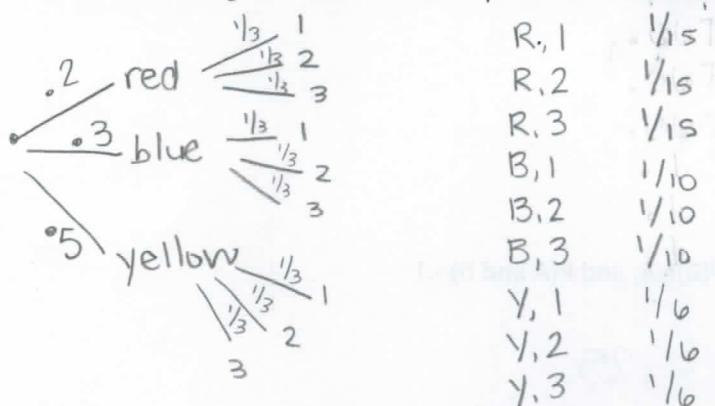 1/3 1
.2 red 1/3 2
1/3 3
.3 blue 1/3 1
1/3 2
1/3 3
.5 yellow 1/3 1
1/3 2
1/3 3
R, 1 1/15
R, 2 1/15
R, 3 1/15
B, 1 1/10
B, 2 1/10
B, 3 1/10
Y, 1 1/6
Y, 2 1/6
Y, 3 1/6